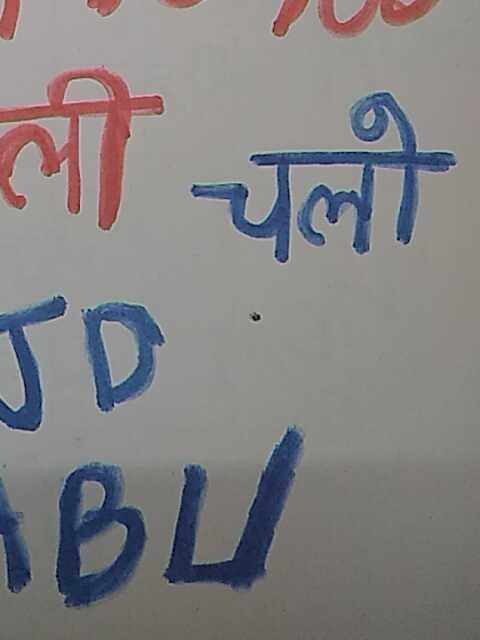 ली चलो
JD
ABU